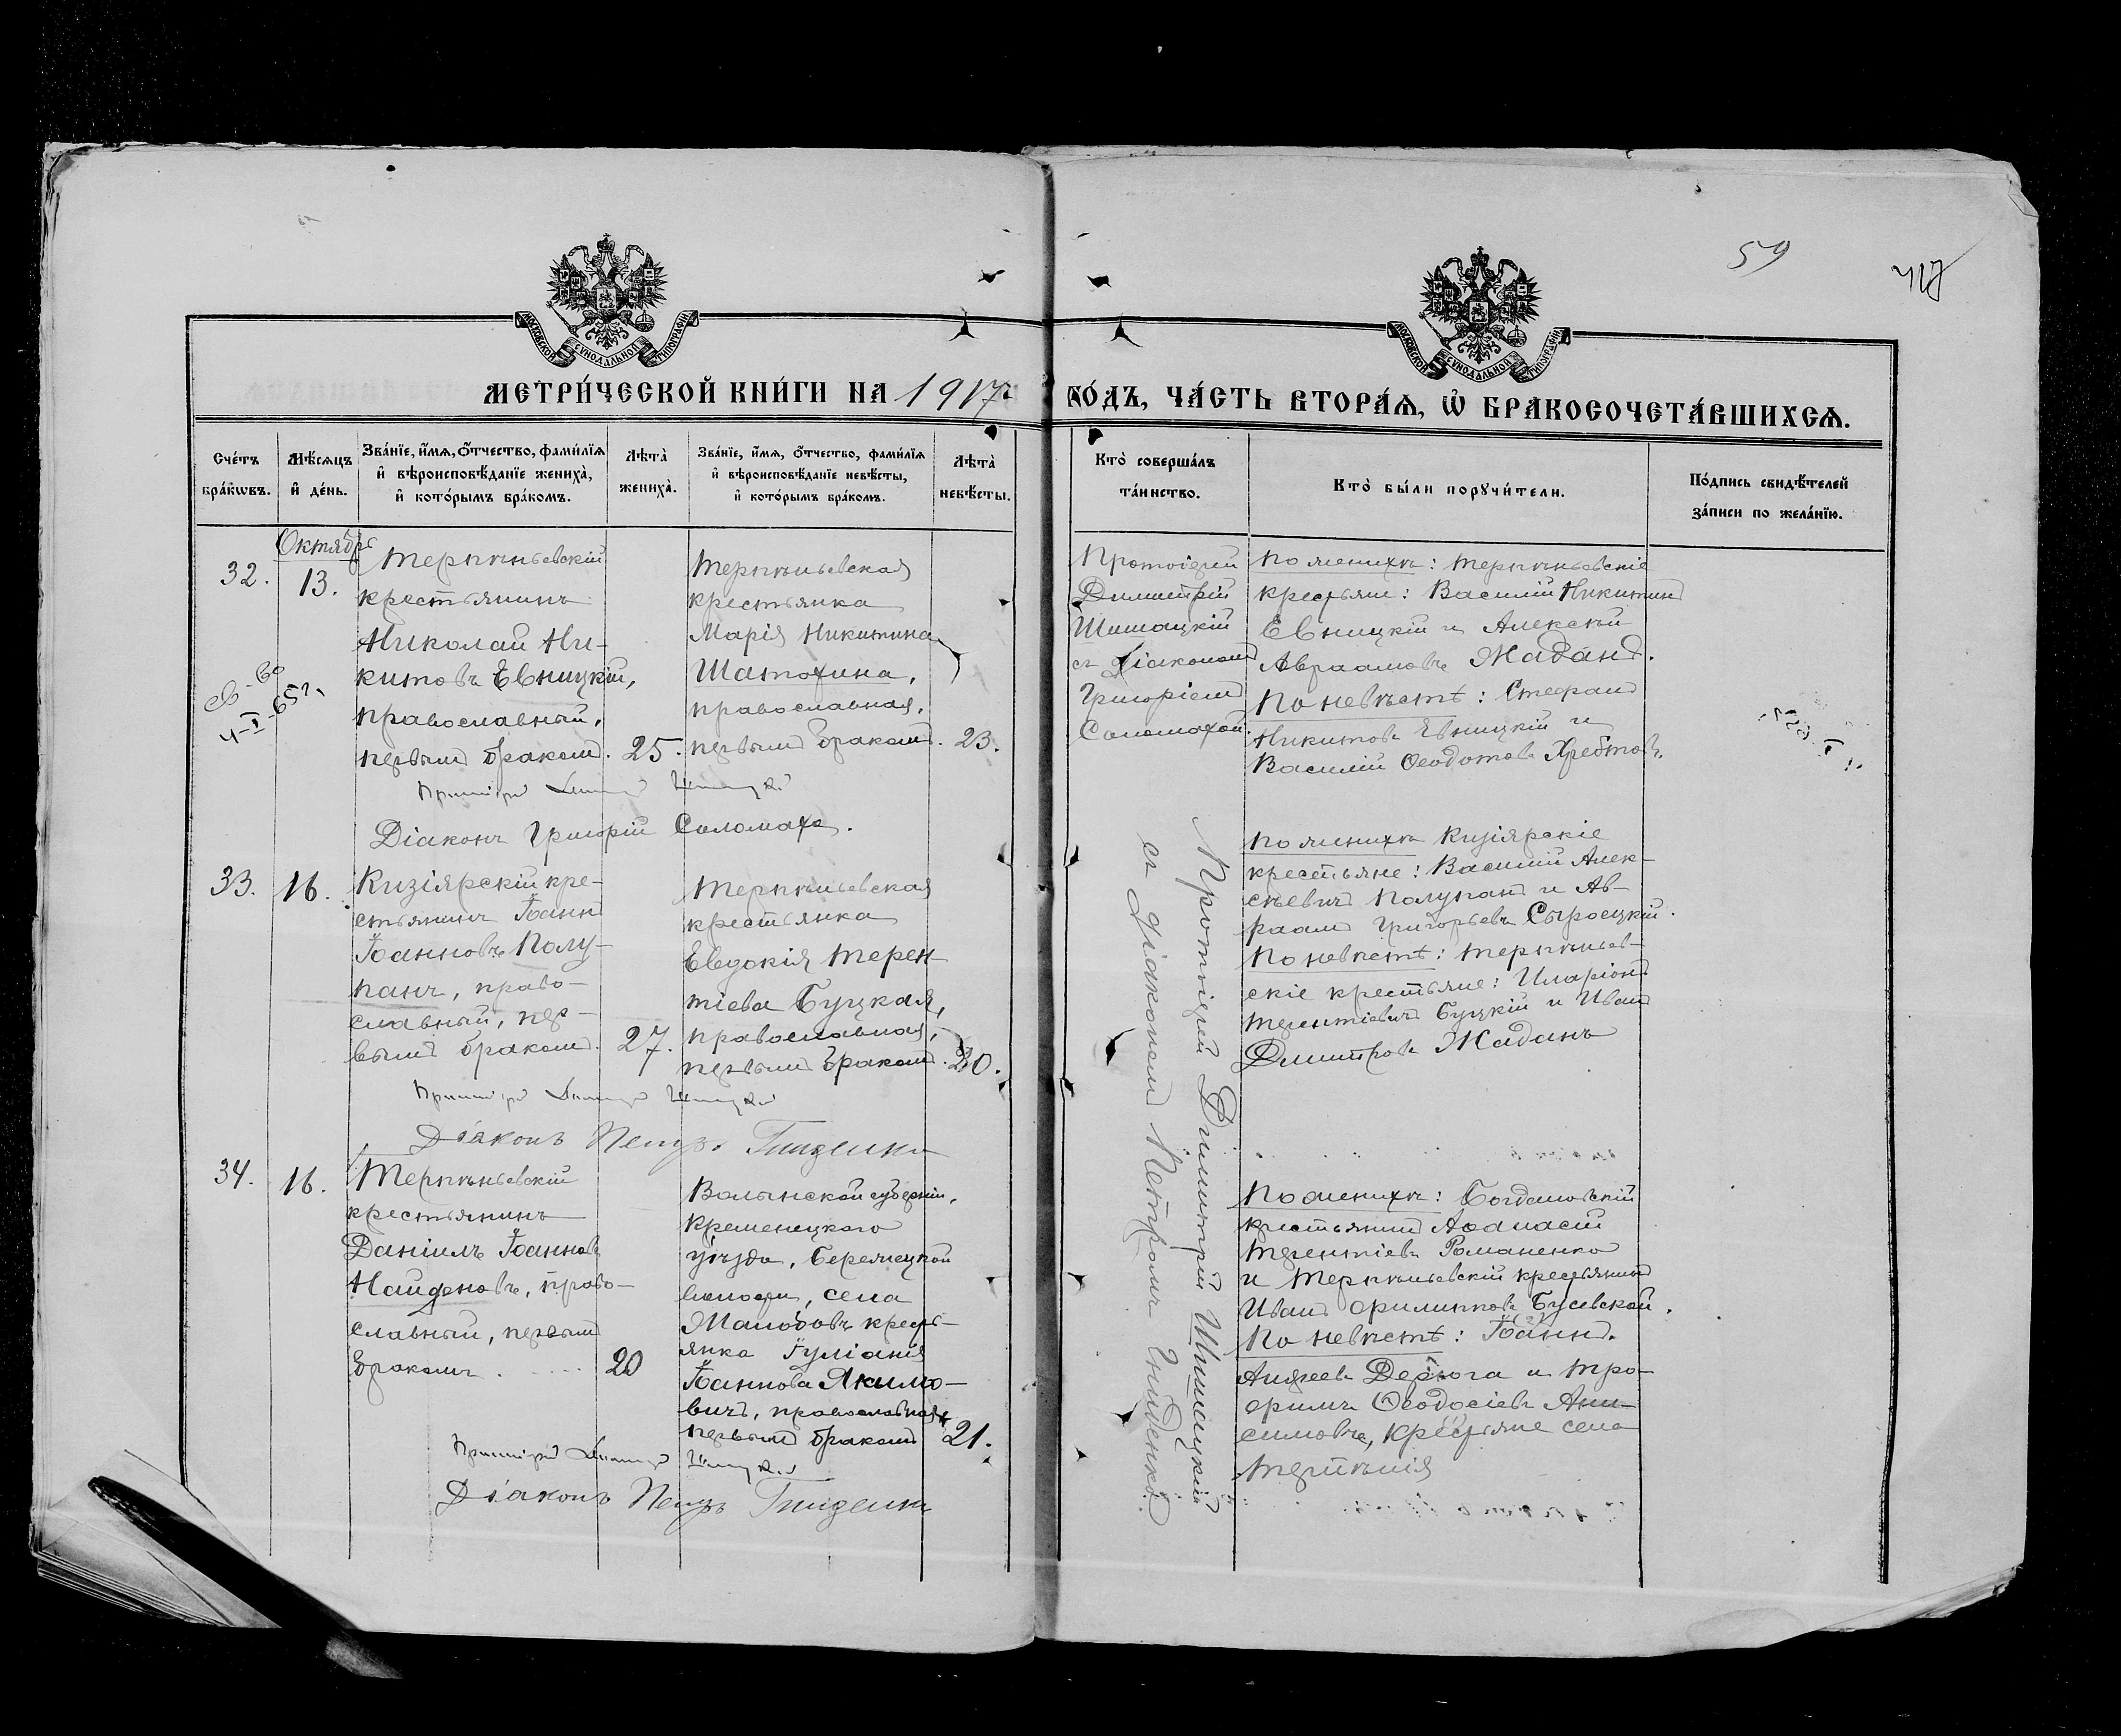 59
МОСКОВСКОЙ СУНОДАЛЬНОЙ ТИПОГРАФІИ
МОСКОВСКОЙ СУНОДАЛЬНОЙ ТИПОГРАФІИ
МЕТРИ́ЧЕСКОЙ КНИ́ГИ НА 1917 го́дъ, ча́сть втора́ѧ, ѡ҆ бракосочета́вшихсѧ.
Сче́тъ бра́кѡвъ.
Мѣ́сѧцъ и҆ де́нь.
Зва́нїе, и҆́мѧ, ѻ҆́тчество, фами́лїѧ
и҆ вѣроисповѣ́данїе жениха̀,
и҆ кото́рымъ бра́комъ.
Лѣта̀ жениха̀.
Зва́нїе, и҆́мѧ, ѻ҆́тчество, фами́лїѧ
и҆ вѣроисповѣ́данїе невѣ́сты,
и҆ кото́рымъ бра́комъ.
Лѣта̀ невѣ́сты.
Кто̀ соверша́лъ
та́инство.
Кто̀ бы́ли порꙋчи́тели.
По́дпись свидѣ́телей
за́писи по жела́нїю.
Октябрь
32.
13.
Терпѣньевскій
крестьянинъ
Николай Ни-
китовъ Евницкій,
православный,
первымъ бракомъ.
25.
Терпѣньевская
крестьянка
Марія Никитина
Шатохина,
православная,
первымъ бракомъ.
23.
Протоіерей
Димитрій
Шишацкій
съ діакономъ
Григоріемъ
Соломахой.
По женихѣ: Терпѣньевскіе
крестьяне: Василій Никитинъ
Евницкій и Алексѣй
Авраамовъ Жаданъ.
По невѣстѣ: Стефанъ
Никитовъ Евницкій и
Василій Ѳеодотовъ Хребтовъ.
4-I-65г.
Діаконъ Григорій Соломаха.
33.
16.
Кизіярскій кре-
стьянинъ Іоаннъ
Іоанновъ Полу-
панъ, право-
славный, пер-
вымъ бракомъ.
27.
Терпѣньевская
крестьянка
Евдокія Терен-
тіева Буцкая,
православная,
первымъ бракомъ.
20.
Протоіерей Димитрій Шишацкій
съ діакономъ Петромъ Гниденко.
По женихѣ Кизіярскіе
крестьяне: Василій Алек-
сѣевичъ Полупанъ и Ав-
раамъ Григорьевъ Сыроецкій.
По невѣстѣ: Терпѣньев-
скіе крестьяне: Иларіонъ
Терентіевичъ Буцкій и Иванъ
Димитровъ Жаданъ
Діаконъ Петръ Гниденко
34.
16.
Терпѣньевскій
крестьянинъ
Даніилъ Іоанновъ
Найденовъ, право-
славный, первымъ
бракомъ.
20
Волынской губерніи,
Кременецкаго
уѣзда, Бережецкой
волости, села
крестьянка Іуліанія
Іоаннова Якимо-
вичъ, православная,
первымъ бракомъ
21.
По женихѣ: Богдановскій
крестьянинъ Аѳанасій
Терентіевъ Романенко
и Терпѣньевскій крестьянинъ
Иванъ Филипповъ Бусевской.
По невѣстѣ: Іоаннъ
Андреевъ Дерюга и Тро-
фимъ Ѳеодосіевъ Ани-
симовъ, крестьяне села
Терпѣнія
Діаконъ Петръ Гниденко